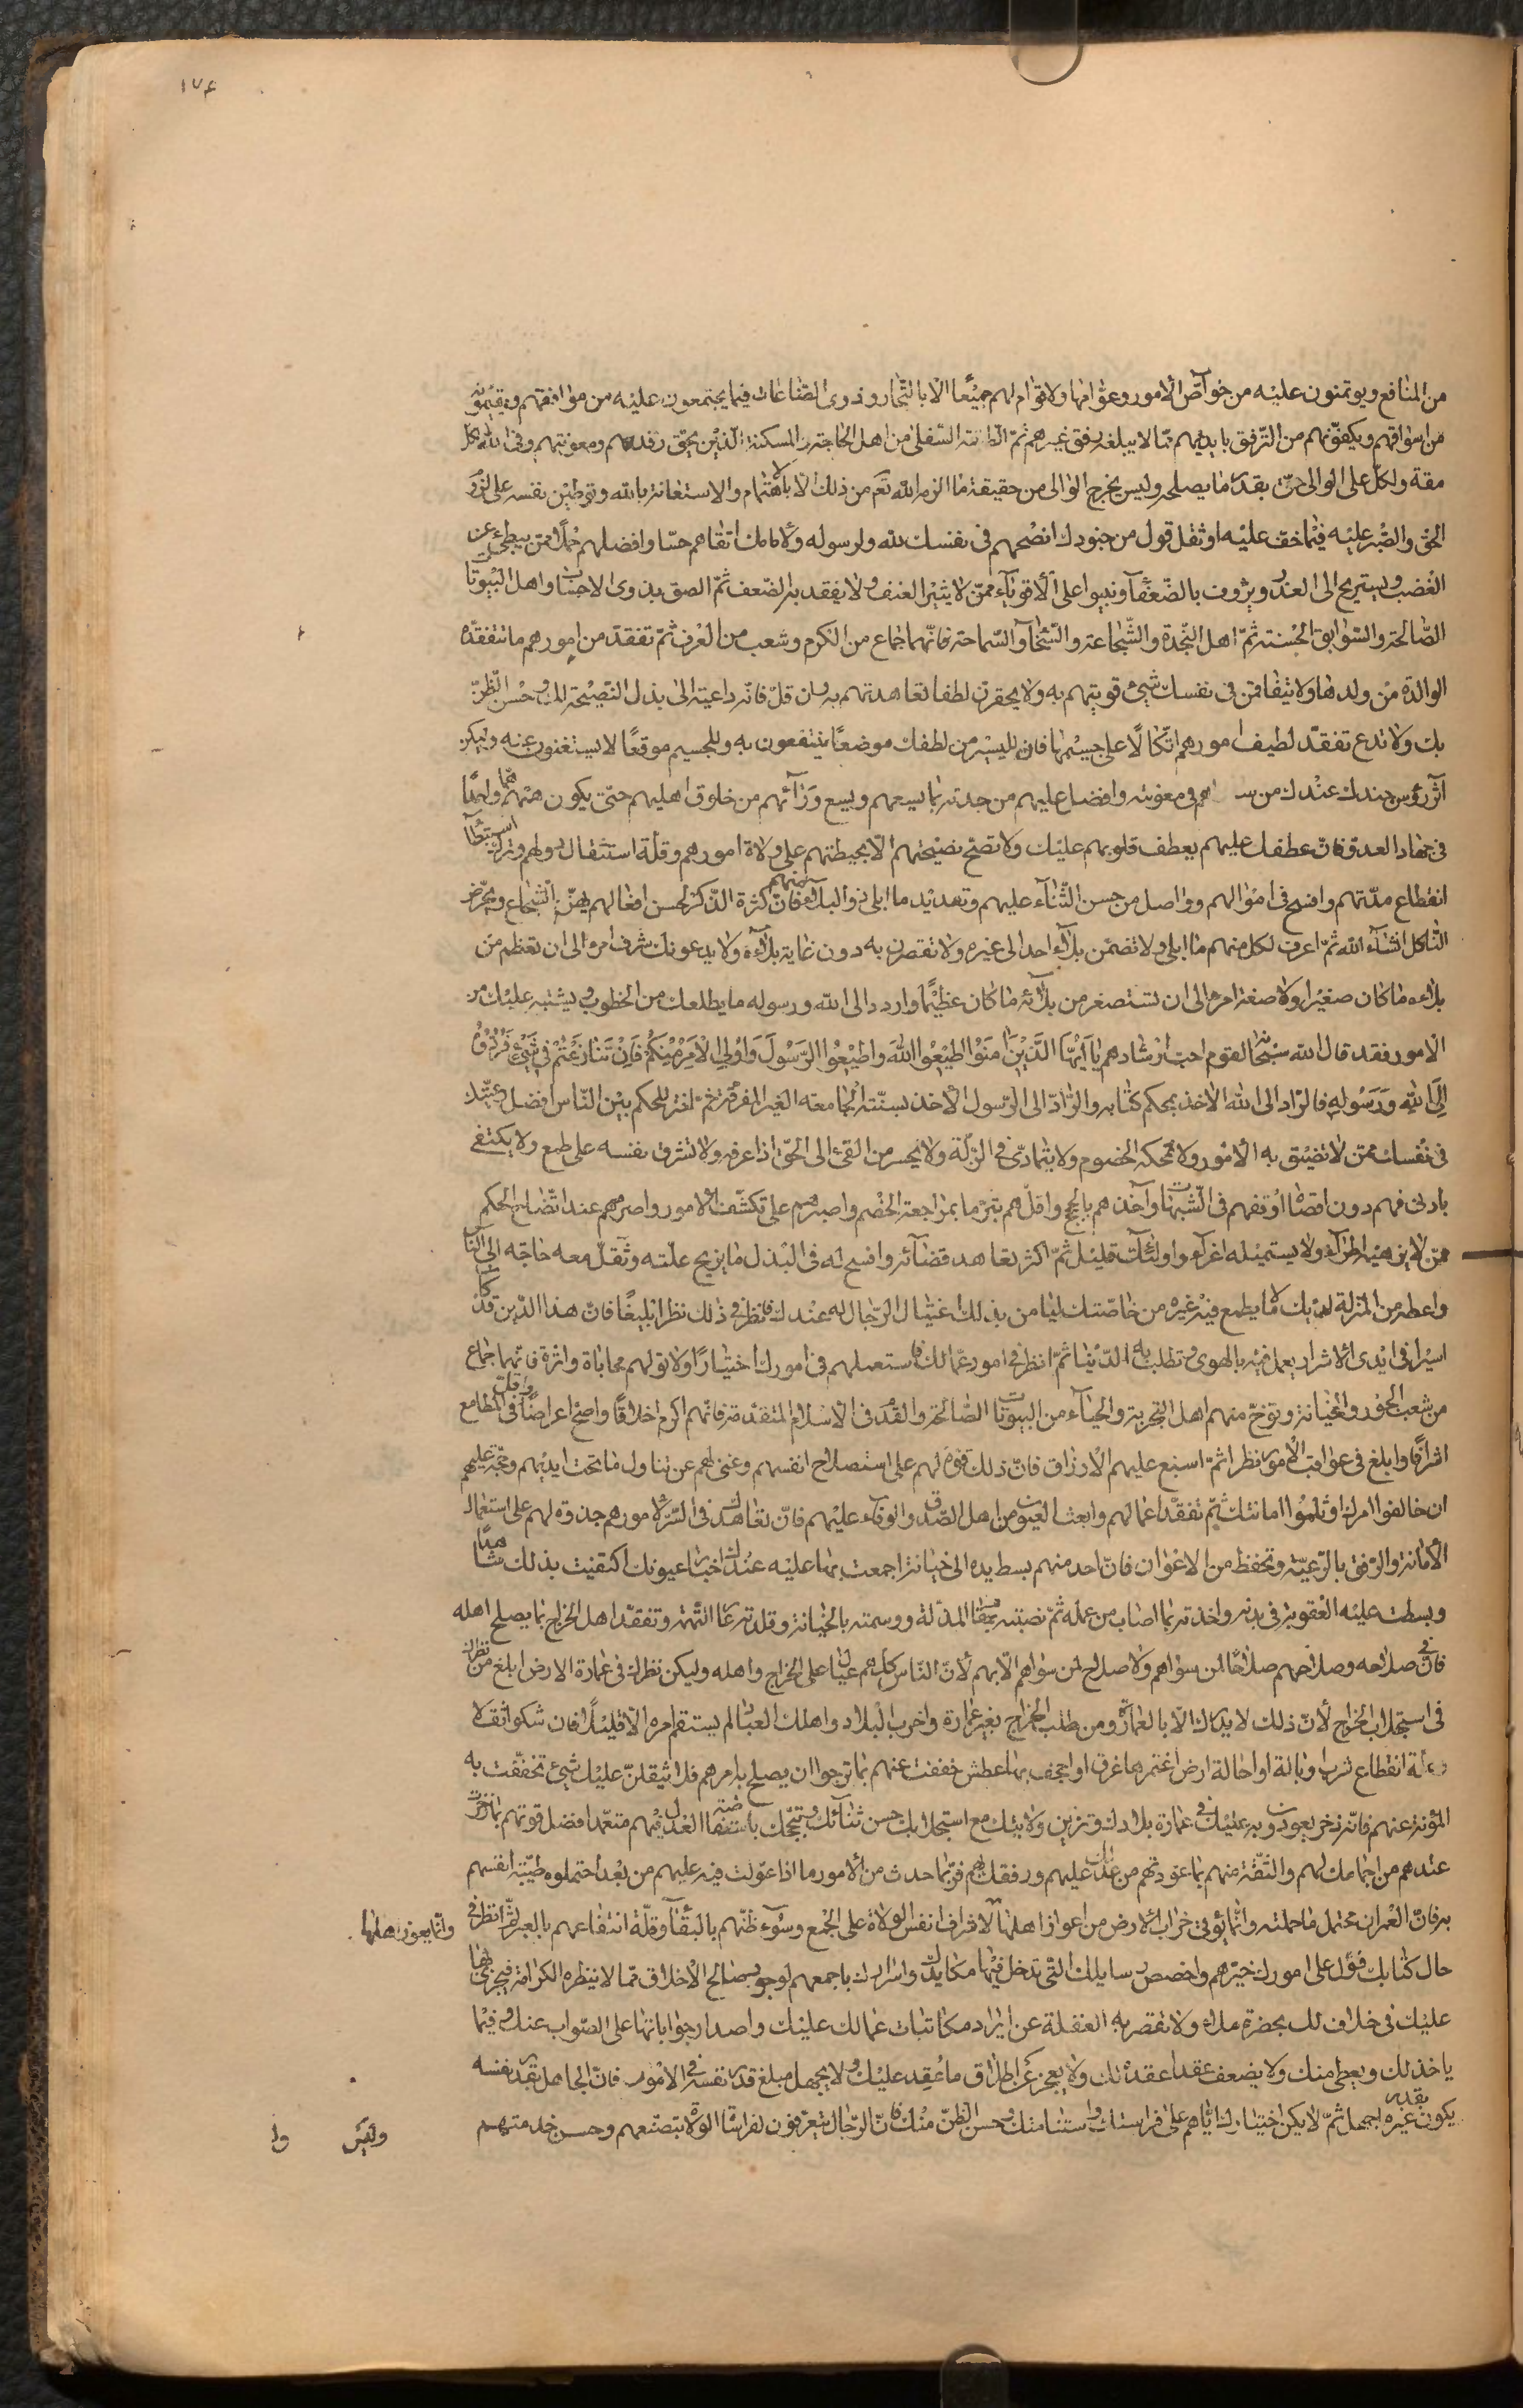 ١٧٤
من المنافع ويوتمنون عليه من خوآصّ الأمور وعوامها ولاقوام لهم جميعًا الا بالتّجار وذوى الصّناعات فيما يجتمعون عليه من موافقهم ويقيمونه
من اسواقهم ويكفونهم من التّرفق بايديهم ممّا لا يبلغه رفق غيرهم ثمّ الطبقة السّفلى من اهل الحاجة والمسكنة الذين يحقّ رفدهم ومعونتهم وفى الله لكل
سعة ولكلّ على الوالى حقّ بقدر ما يصلحه وليس يخرج الوالى من حقيقة ما الزمه الله تع من ذلك الا بالاهتمام والاستعانة بالله وتوطين نفسه على لزوم
الحق والصّبر عليه فيما خفّ عليه او ثقل فول من جنودك انصحهم فى نفسك لله ولرسوله ولامامك اتقاهم جيبا وافضلهم حلما ممّن يبطىء عن
الغضب ويستريح الى العذر ويرؤف بالضّعفآء وينبوا على الأقويآء ممّن لا يثيره العنف ولا يقعد به الضّعف ثمّ الصق بذوى الاحساب واهل البيوتا
الصّالحة والسّوابق الحسنة ثمّ اهل النّجدة والشّجاعة والسّخآء والسّماحة فانّهما جماع من الكرم وشعب من العرف ثمّ تفقد من امورهم ما تتفقده
الوالدة من ولدها ولا يتفاقمن فى نفسك شيئ قويتهم به ولا يحقرن لطفا تعاهدتهم به وان قلّ فانّه داعية الى بذل النّصيحة لك وحسن الظّنّ
بك ولا تدع تفقد لطيف امورهم اتّكالًا على جسيمها فان لليسير من لطفك موضعًا ينتفعون به وللجسيم موقعًا لا يستغنون عنه وليكن
آثر رؤس جندك عندك من اهم فى معونته وافضل عليهم من جدته بما يسعهم ويسع ورآئهم من خلوف اهليهم حتّى يكون همّهم همّا واحدًا
فى جهاد العدو فانّ عطفك عليهم يعطف قلوبهم عليك ولا تصحّ نصيحتهم الّا بحيطتهم على ولاة امورهم وقلّة استثقال دولهم وترك استبطآء
انقطاع مدّتهم وافسح فى اموالهم وواصل من حسن الثّنآء عليهم وتعديد ما ابلى ذووا البلآء منهم فانّ كثرة الذّكر لحسن افعالهم يهزّ الشّجاع ويحرّض
النّاكل انشآء الله ثمّ اعرف لكل منهم ما ابلى ولا تضمّن بلآء احد الى غيره ولا تقصرن به دون غاية بلآئه ولا يدعونك شرف امرء الى ان تعظم من
بلآئه ما كان صغيرا ولا صغة امرء الى ان تستصغر من بلآئه ما كان عظيمًا واردد الى الله ورسوله ما يطلعك من الخطوب ويشتبه عليك من
الامور فقد قال الله سبحانه لقوم احبّ ارشادهم يَا اَيُّهَا الَّذِينَ امَنُوا اَطِيعُوا اللهَ وَاَطِيعُوا الرَّسُولَ وَاُولِى الْاَمْرِ مِنْكُمْ فَاِنْ تَنَازَعْتُمْ فِى شَيْئٍ فَرُدُّوهُ
اِلَى اللهِ وَرَسُولِهِ فالرّاد الى الله الآخذ بمحكم كتابه والرّادّ الى الرّسول الآخذ بسنّته الجامعة الغير المفرّقة ثمّ اختر للحكم بين النّاس افضل رعيّتك
فى نفسك ممّن لا تضيق به الأمور ولا تمحكه الخصوم ولا يتمادى فى الزّلة ولا يحصر من الفئ الى الحقّ اذا عرفه ولا تشرف نفسه على طمع ولا يكتفى
بادنى فهم دون اقصاه اوقفهم فى الشّبهات وآخذهم بالحجج واقلّهم تبرّما بمراجعة الخصم واصبرهم على تكشّف الأمور واصرمهم عند اتّضاح الحكم
ممّن لا يزدهيه اطرآء ولا يستميله اغرآء واولئك قليل ثمّ اكثر تعاهد قضآئه وافسح له فى البذل ما يزيح علّته وتقلّ معه حاجته الى النّا
واعطه من المنزلة لديك ما لا يطمع فيه غيره من خاصّتك ليامن بذلك اغتيال الرّجال له عندك فانظر فى ذلك نظرا بليغًا فانّ هذا الدّين قد كا
اسيرا فى ايدى الأشرار يعمل فيه بالهوى وتطلب به الدّنيا ثمّ انظر فى امور عمّالك فاستعملهم فى امورك اختيارًا ولا تولهم محاباة واثرة فانّهما جماع
من شعب الجور والخيانة وتوخّ منهم اهل التّجربة والحيآء من البيوتات الصّالحة والقدم فى الاسلام المتقدّمة فانّهم اكرم اخلاقًا واصحّ اعراضًا واقلّ فى المطامع
اشرافًا وابلغ فى عواقب الأمور نظرا ثمّ اسبغ عليهم الأرزاق فانّ ذلك قوة لهم على استصلاح انفسهم وغنى لهم عن تناول ما تحت ايديهم وحجّة عليهم
ان خالفوا امرك او ثلموا امانتك ثمّ تفقد اعمالهم وابعث العيون من اهل الصّدق والوفاء عليهم فانّ تعاهدك فى السّرّ لأمورهم حذوة لهم على استعمال
الأمانة والرّفق بالرّعيّة وتحفظ من الاعوان فانّ احد منهم بسط يده الى خيانة اجتمعت بها عليه عندك اخبار عيونك اكتفيت بذلك شاهدًا
وبسطت عليه العقوبة فى بدنه واخذته بما اصاب من عمله ثمّ نصبته بمقام المذلّة ووسمته بالخيانة وقلدته عار التّهمة وتفقد اهل الخراج بما يصلح اهله
فانّ فى صلاحه وصلاحهم صلاحًا لمن سواهم ولا صلاح لمن سواهم الّا بهم لأنّ النّاس كلّهم عيال على الخراج واهله وليكن نظرك فى عمارة الارض ابلغ من نظرك
فى استجلاب الخراج لأنّ ذلك لا يدرك الّا بالعمارة ومن طلب الخراج بغير عمارة واخرب البلاد واهلك العباد لم يستقم امره الّا قليلًا فان شكوا ثقلا
علة انقطاع شرب وبالة او احالة ارض اغتمرها غرق او اجحف بها عطش خففت عنهم بما ترجوا ان يصلح به امرهم فلا يثقلنّ عليك شيئ تخففت به
المؤنة عنهم فانّه ذخر يعودون به عليك فى عمارة بلادك وتزيين ولايتك مع استجلابك حسن ثنآئك وتبجّحك باستفاضة العدل فيهم متعمّدا افضل قوتهم بما ذخرت
عندهم من اجمامك لهم والثّقة منهم بما عودتهم من عدلك عليهم ورفقك بهم فربّما حدث من الأمور ما اذا عوّلت فيه عليهم من بعد احتملوه طيّبة انفسهم
به فانّ العمران محتمل ما حملته وانّما يؤتى خراب الأرض من اعواز اهلها لاشراف انفس الولاة على الجمع وسوء ظنّهم بالبقآء وقلّة انتفاعهم بالعبر ثمّ انظر فى
وانّما يعوز اهلها
حال كتّابك فوّل على امورك خيرهم واخصص رسايلك التّى تدخل فيها مكايدك واسرارك باجمعهم لوجوه صالح الاخلاق ممّا لا تبطره الكرامة فيجترئ بها
عليك فى خلاف لك بحضرة ملاء ولا تقصر به الغفلة عن ايراد مكاتبات عمّالك عليك واصدار جواباتها على الصّواب عندك وفيما
ياخذ لك ويعطى منك ولا يضعف عقدا عقده لك ولا يعجز عن اطلاق ما عُقِد عليك ولا يجهل مبلغ قدر نفسه فى الأمور فانّ الجاهل بقدر نفسه
يكون بقدر غيره اجهل ثمّ لا يكن اختيارك ايّاهم على فراستك واستنامتك وحسن الظّنّ منك فانّ الرّجال يتعرّفون لفراسات الولاة بتصنّعهم وحسن خدمتهم
وليس